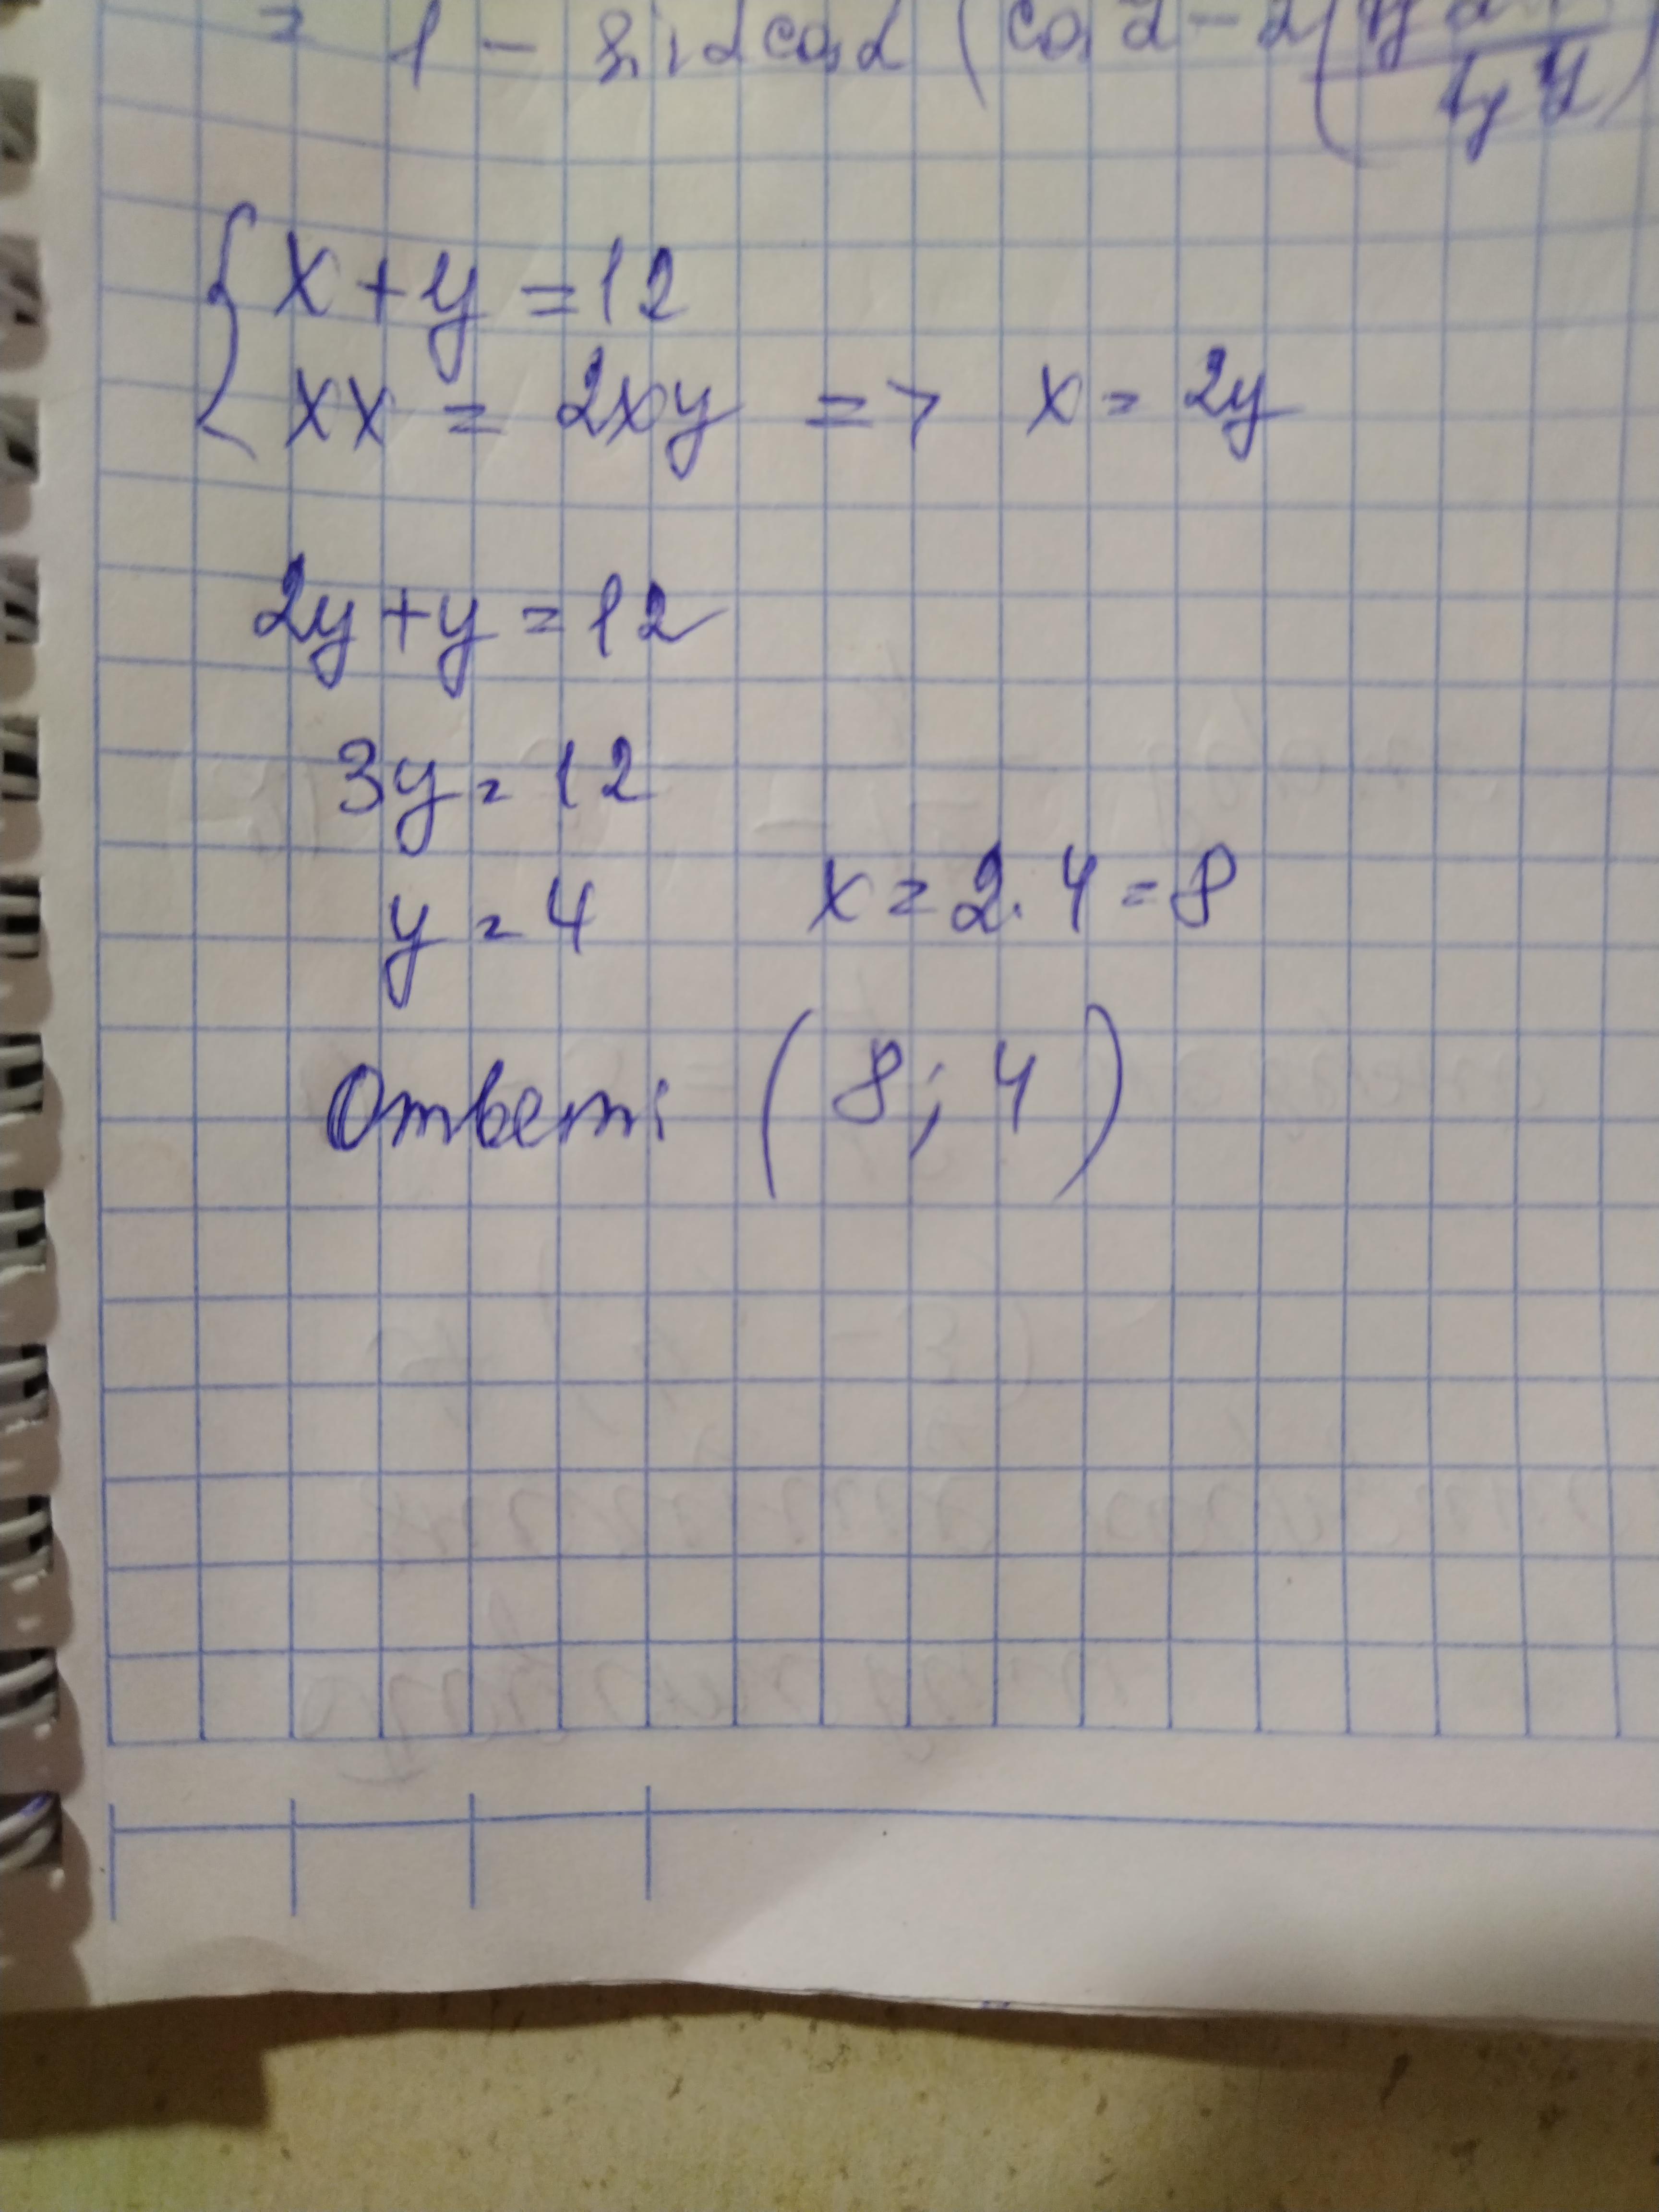 = 1 - sin2cos2 (cos2 - 2(
x + y = 12
xx = 2xy => x = 2y
2y + y = 12
3y = 12
y = 4 x = 2 · 4 = 8
Ответ: (8; 4)